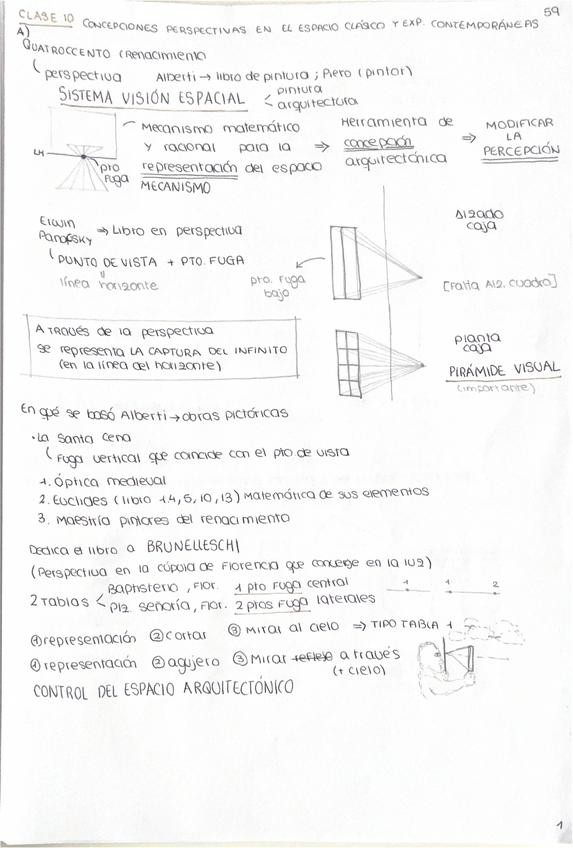 CLASE 10 CONCEPCIONES PERSPECTIVAS EN EL ESPACIO CLÁSICO Y EXP. CONTEMPORÁNEAS
59
A)
QUATROCCENTO (Renacimiento
perspectiva Alberti → libro de pintura ; Piero (pintor)
SISTEMA VISIÓN ESPACIAL < pintura
arquitectura
LH
pto
fuga
Mecanismo matemático
y racional para la
representación del espacio
MECANISMO
⇒ Herramienta de
concepción
arquitectónica
⇒ MODIFICAR
LA
PERCEPCIÓN
Erwin
Panofsky ⇒ Libro en perspectiva
PUNTO DE VISTA + PTO. FUGA
línea horizonte
pto. fuga
bajo
Alzado
caja
[Falta Alz. cuadro]
planta
caja
PIRÁMIDE VISUAL
(importante)
A TRAVÉS de la perspectiva
se representa LA CAPTURA DEL INFINITO
(en la línea del horizonte)
En qué se basó Alberti → obras pictóricas
· La Santa Cena
Fuga vertical que coincide con el pto de vista
1. Óptica medieval
2. Euclides (libro 1 4, 5, 10, 13) Matemática de sus elementos
3. Maestría pintores del renacimiento
Dedica el libro a BRUNELLESCHI
(Perspectiva en la cúpula de Florencia que converge en la luz)
2 Tablas < Baptisterio, Flor. 1 pto Fuga central
Plz. señoría, Flor. 2 ptos Fuga laterales
1 1 2
① representación ② cortar ③ Mirar al cielo ⇒ TIPO TABLA 1
① representación ② agujero ③ Mirar reflejo a través
(+ cielo)
CONTROL DEL ESPACIO ARQUITECTÓNICO
1